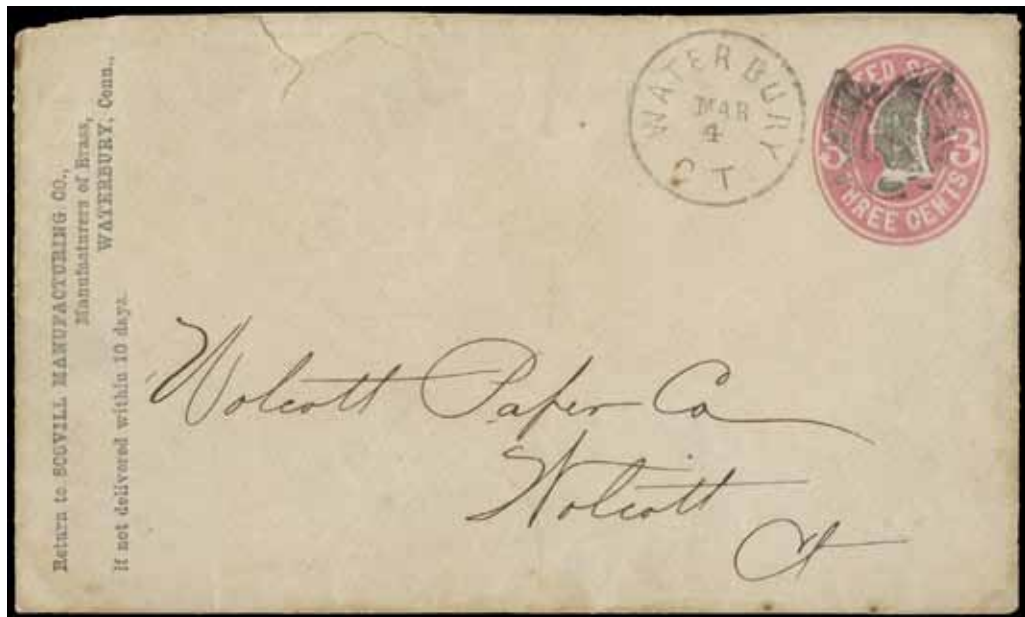 Return to SCOVILL MANUFACTURING CO.,
Manufacturers of Brass,
WATERBURY, Conn.,
If not delivered within 10 days.
WATERBURY
MAR
4
CT
3 3
THREE CENTS
Wolcott Paper Co
Wolcott
Ct